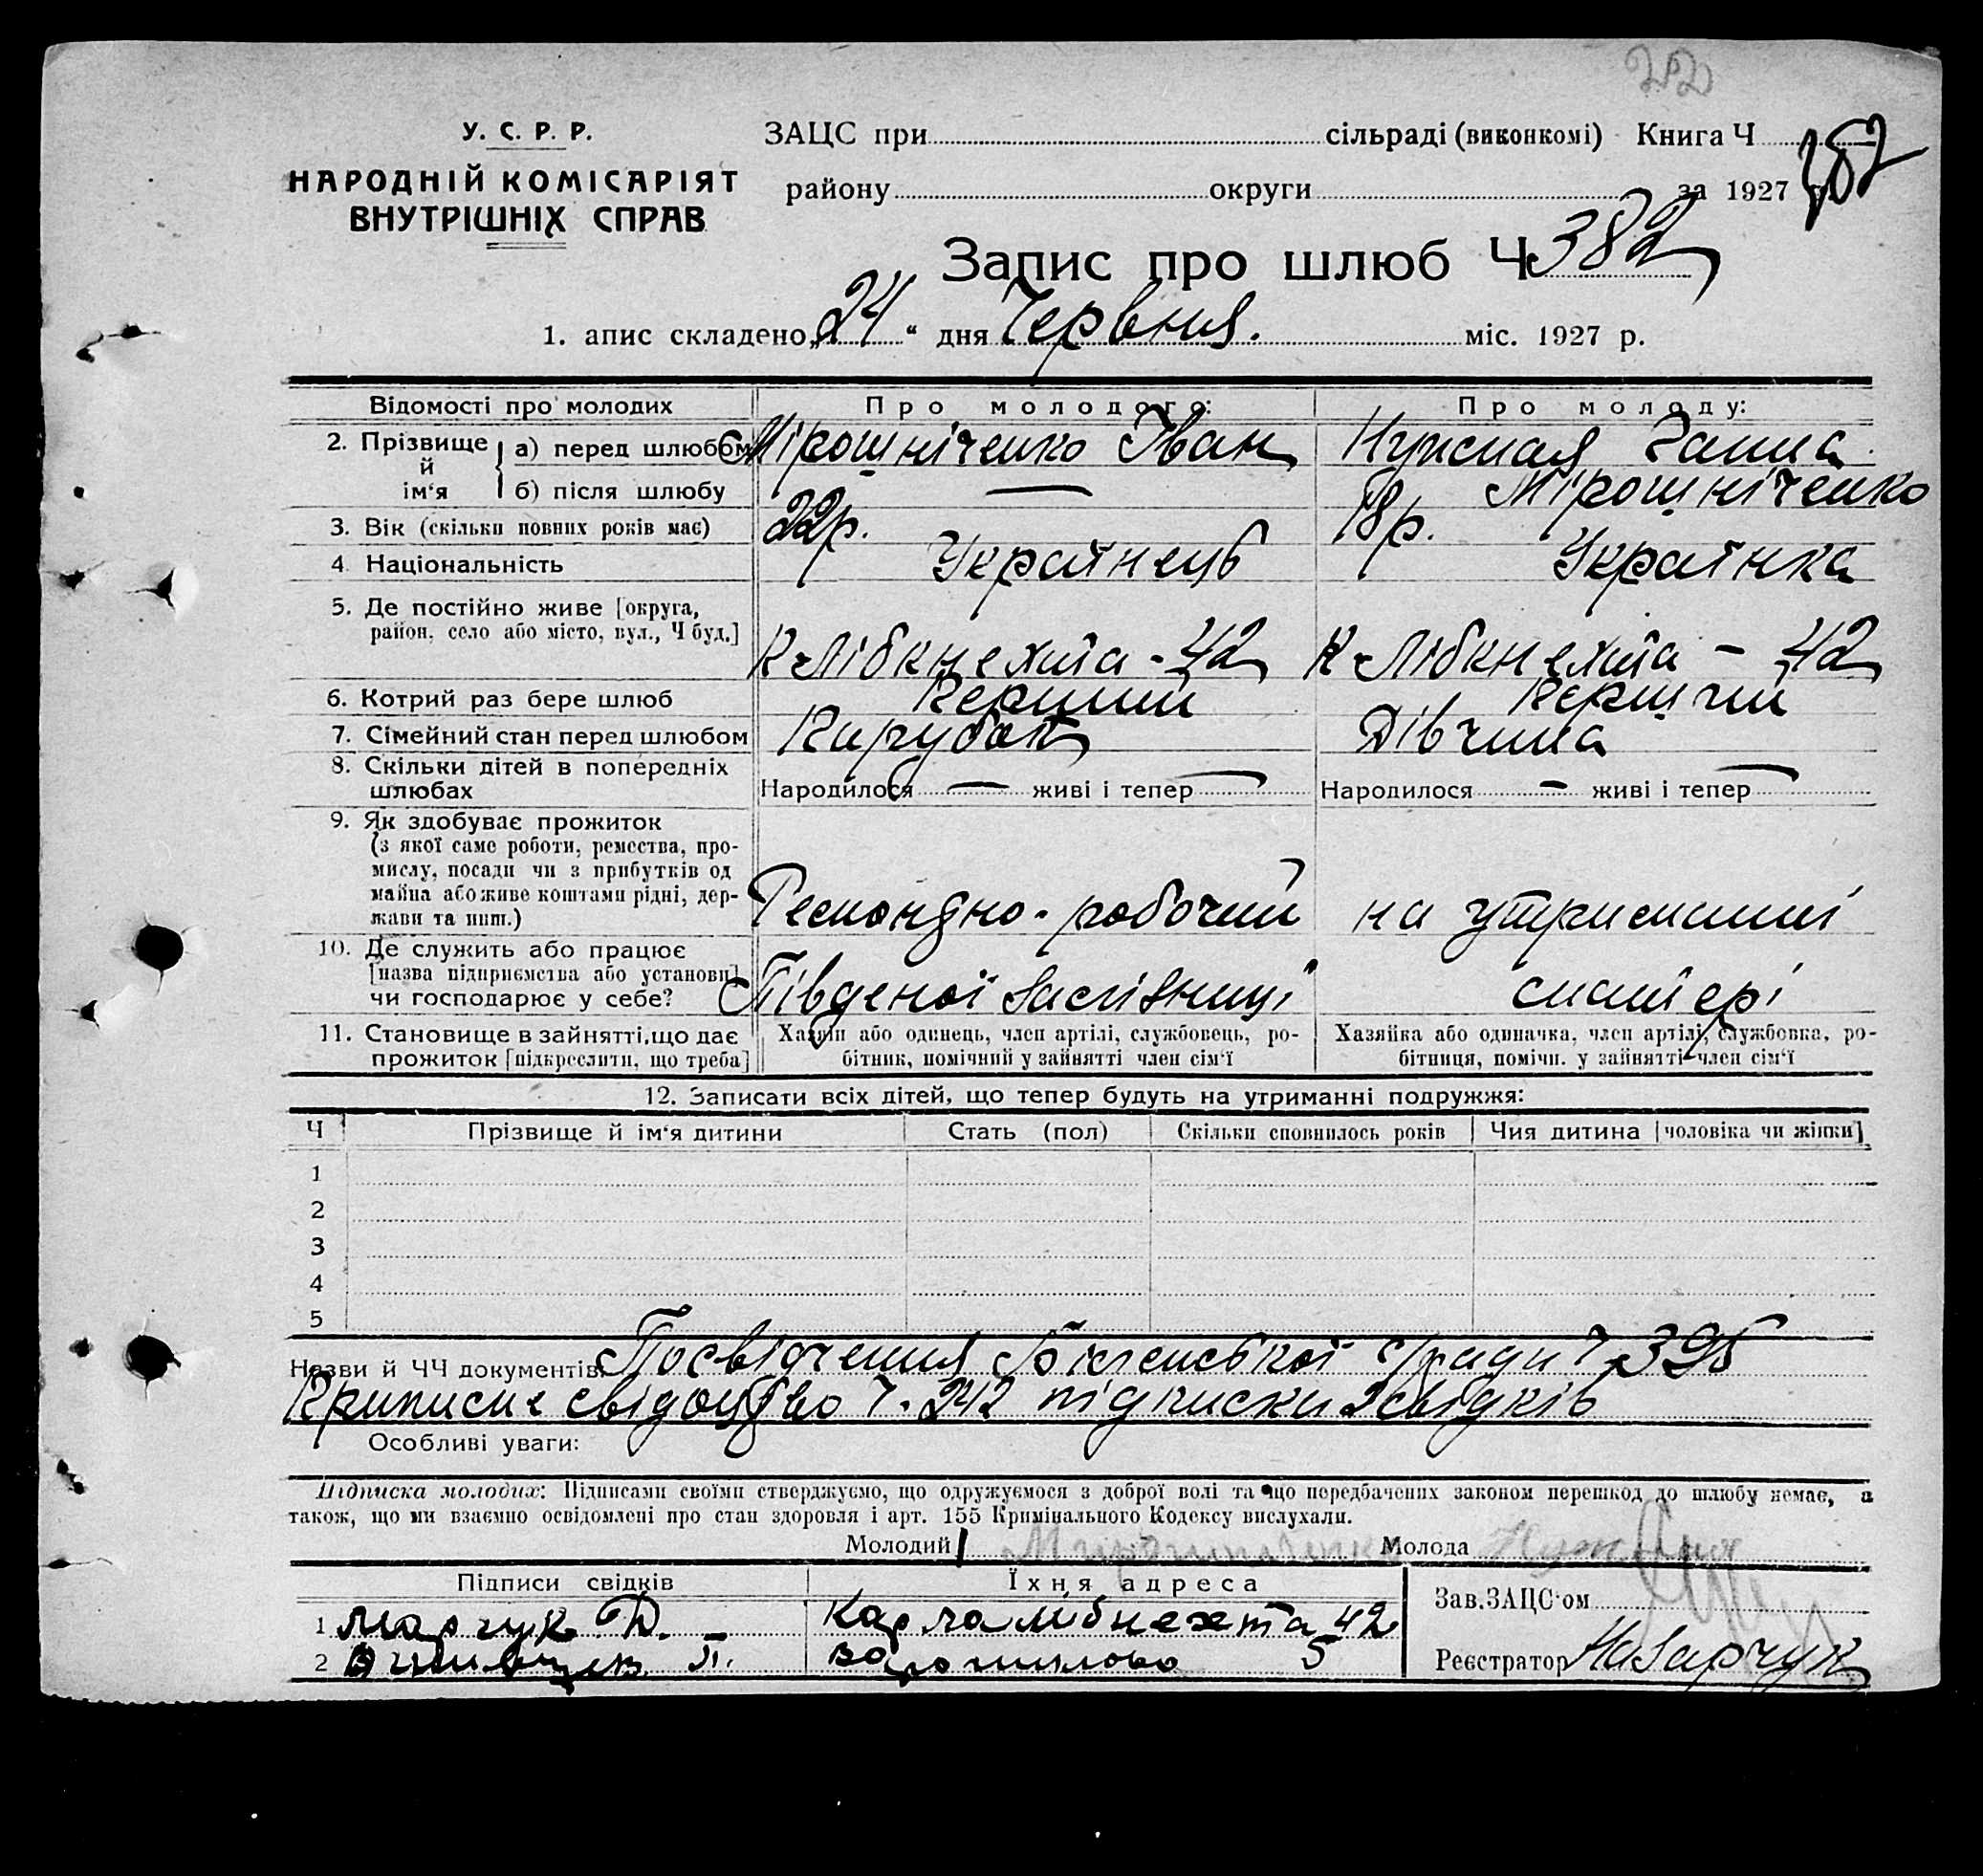 22
У. С. Р. Р.
НАРОДНІЙ КОМІСАРІЯТ
ВНУТРІШНІХ СПРАВ
ЗАЦС при сільраді (виконкомі) Книга Ч
району округи за 1927
Запис про шлюб Ч 382
1. апис складено „24“ дня Червня. міс. 1927 р.
Відомості про молодих Про молодого: Про молоду:
2. Прізвище й ім‘я а) перед шлюбом Мірошніченко Іван Нужная Ганна
б) після шлюбу — Мірошніченко
3. Вік (скільки повних років має) 22р. 18р.
4 Національність Українець Українка
5. Де постійно живе [округа,
район, село або місто, вул., Ч буд.]
К Лібкнехта - 42 К Лібкнехта - 42
6. Котрий раз бере шлюб Перший Перший
7. Сімейний стан перед шлюбом Парубок Дівчина
8. Скільки дітей в попередніх
шлюбах Народилося — живі і тепер — Народилося — живі і тепер —
9. Як здобуває прожиток
(з якої саме роботи, ремества, про-
мислу, посади чи з прибутків од
майна або живе коштами рідні, дер-
жави та инш.) робочий на утриманні
10. Де служить або працює
[назва підприємства або установи]
чи господарює у себе? Південої залізниці матері
11. Становище в зайнятті, що дає
прожиток [підкреслити, що треба]
Хазяїн або одинець, член артілі, службовець, ро-
бітник, помічний у зайнятті член сім‘ї
Хазяйка або одиначка, член артілі, службовка, ро-
бітниця, помічн. у зайнятті член сім‘ї
12. Записати всіх дітей, що тепер будуть на утриманні подружжя:
Ч Прізвище й ім‘я дитини Стать (пол) Скільки сповнилось років Чия дитина [чоловіка чи жінки]
1
2
3
4
5
Назви й ЧЧ документів: Посвідчення с/ради Ч 395
Приписне свідоцтво Ч. 242 підписки 2 свідків
Особливі уваги:
Підписка молодих: Підписами своїми стверджуємо, що одружуємося з доброї волі та що передбачених законом перешкод до шлюбу немає, а
також, що ми взаємно освідомлені про стан здоровля і арт. 155 Кримінального Кодексу вислухали.
Молодий Мирошниченко Молода Нужная
Підписи свідків Їхня адреса
Зав. ЗАЦС‘ом
1 Марчук Д. Карла лібнехта 42
2 П. Ворошилова 5
Реєстратор Назарчук